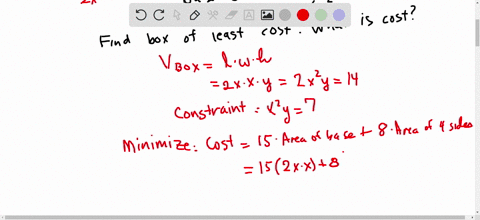 2x
Find box of least cost. What is cost?
V BOX = l·w·h
= 2x·x·y = 2x²y = 14
Constraint: x²y = 7
Minimize: Cost = 15·Area of base + 8·Area of 4 sides
= 15(2x·x) + 8